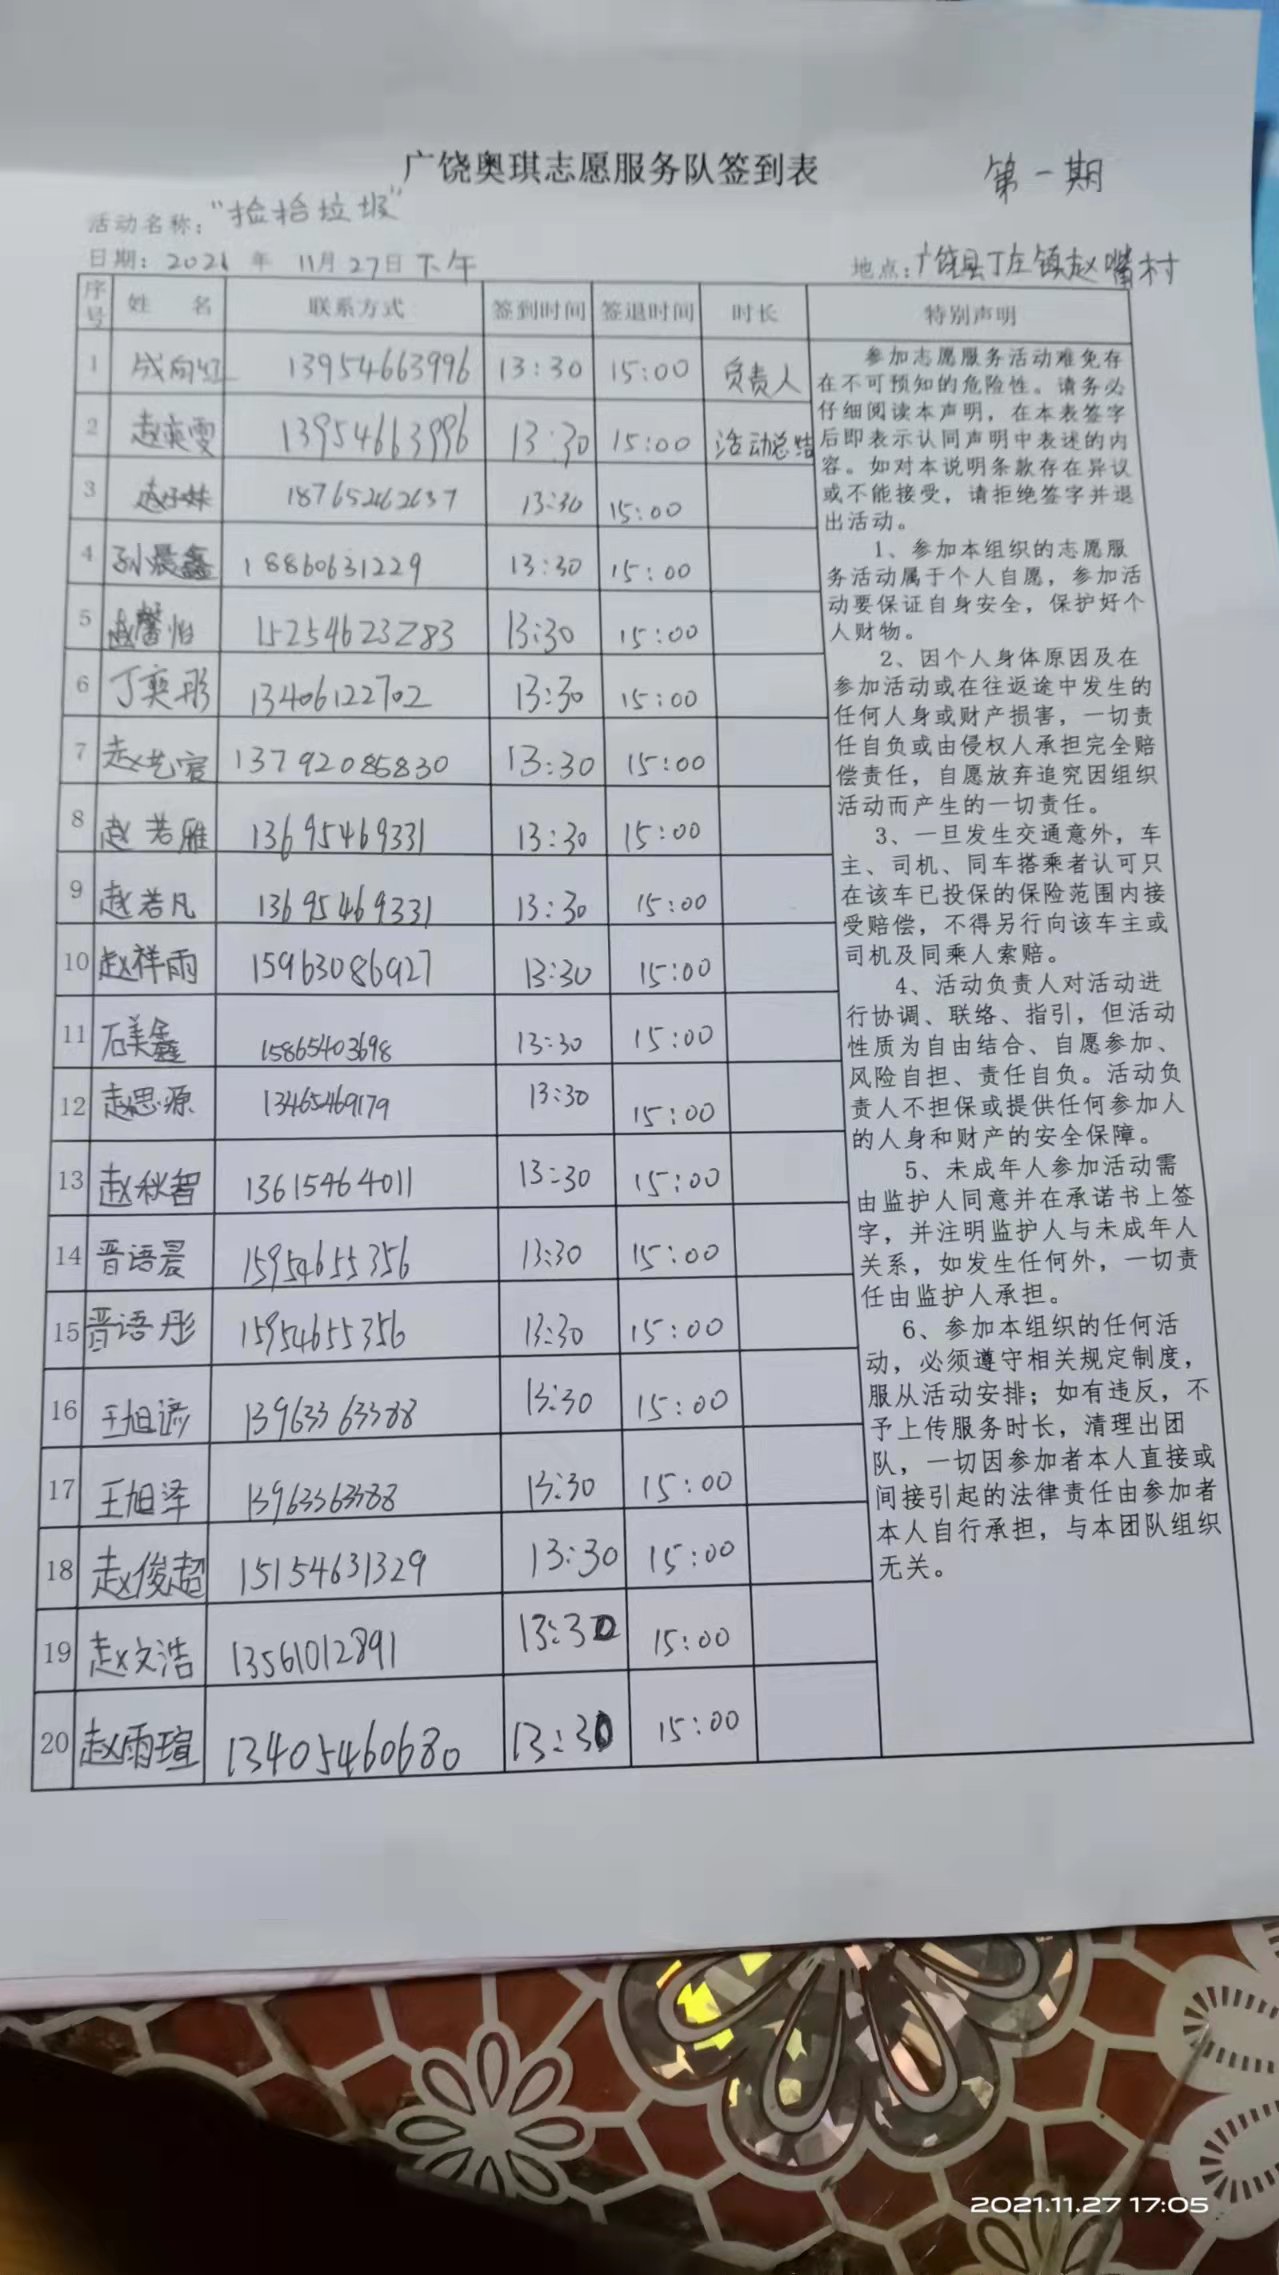 广饶奥琪志愿服务队签到表
第一期
活动名称:"捡拾垃圾"
日期: 2021 年 11月27日下午
地点:广饶县丁庄镇赵嘴村
序号 姓 名 联系方式 签到时间 签退时间 时长 特别声明
1 成向红 13954663996 13:30 15:00 负责人
2 赵奕雯 13954663996 13:30 15:00 活动总结
3 18765262637 13:30 15:00
4 孙晨鑫 18860631229 13:30 15:00
5 赵馨怡 15254623283 13:30 15:00
6 丁奕彤 13406122702 13:30 15:00
7 赵艺宸 13792085830 13:30 15:00
8 赵若雅 13695469331 13:30 15:00
9 赵若凡 13695469331 13:30 15:00
10 赵祥雨 15963086927 13:30 15:00
11 石美鑫 15865403698 13:30 15:00
12 赵思源 13465469179 13:30 15:00
13 赵秋智 13615464011 13:30 15:00
14 晋语晨 15954655356 13:30 15:00
15 晋语彤 15954655356 13:30 15:00
16 王旭谚 13963363388 13:30 15:00
17 王旭泽 13963363388 13:30 15:00
18 赵俊超 15154631329 13:30 15:00
19 赵文浩 13561012891 13:30 15:00
20 赵雨瑄 13405460680 13:30 15:00
参加志愿服务活动难免存
在不可预知的危险性。请务必
仔细阅读本声明,在本表签字
后即表示认同声明中表述的内
容。如对本说明条款存在异议
或不能接受,请拒绝签字并退
出活动。
1、参加本组织的志愿服
务活动属于个人自愿,参加活
动要保证自身安全,保护好个
人财物。
2、因个人身体原因及在
参加活动或在往返途中发生的
任何人身或财产损害,一切责
任自负或由侵权人承担完全赔
偿责任,自愿放弃追究因组织
活动而产生的一切责任。
3、一旦发生交通意外,车
主、司机、同车搭乘者认可只
在该车已投保的保险范围内接
受赔偿,不得另行向该车主或
司机及同乘人索赔。
4、活动负责人对活动进
行协调、联络、指引,但活动
性质为自由结合、自愿参加、
风险自担、责任自负。活动负
责人不担保或提供任何参加人
的人身和财产的安全保障。
5、未成年人参加活动需
由监护人同意并在承诺书上签
字,并注明监护人与未成年人
关系,如发生任何外,一切责
任由监护人承担。
6、参加本组织的任何活
动,必须遵守相关规定制度,
服从活动安排;如有违反,不
予上传服务时长,清理出团
队,一切因参加者本人直接或
间接引起的法律责任由参加者
本人自行承担,与本团队组织
无关。
2021.11.27 17:05